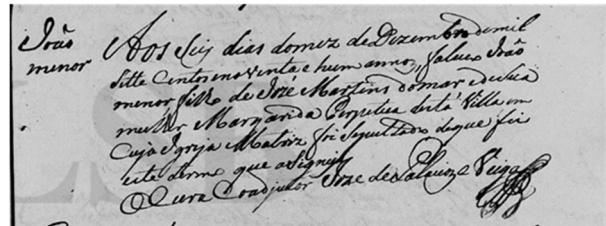 João
menor
Aos Seis dias do mez de Dezembro de mil
Sette Centos e noventa e hum annos, faleceo João
menor filho de Joze Martins do mar e de sua
mulher Margarida Perpetua desta Villa em
Cuja Igreja Matriz foi Sepultado de que fis
este termo que asigney
O Cura Coadjutor Joze de Veiga